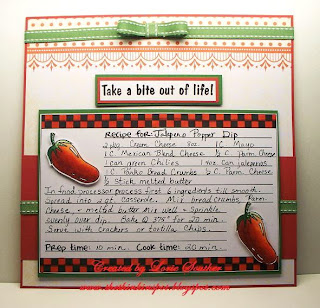 Take a bite out of life!
Recipe for: Jalapeno Popper Dip
2 pkg Cream Cheese 8oz 1C Mayo
1 C Mexican Blend Cheese ½ C. Parm Cheese
1 can green Chilies 1 4oz Can jalapenos
1 C Panko Bread Crumbs ½ C. Parm Cheese
½ stick melted butter
In food processor process first 6 ingredients till smooth.
Spread into 2 qt. Casserole. Mix bread crumbs, Parm
Cheese + melted butter mix well - Sprinkle
evenly over dip. Bake @ 375° 20 min.
Serve with Crackers or tortilla Chips.
Prep time: 10 min. Cook time: 20 min.
Created by Lorie Souther